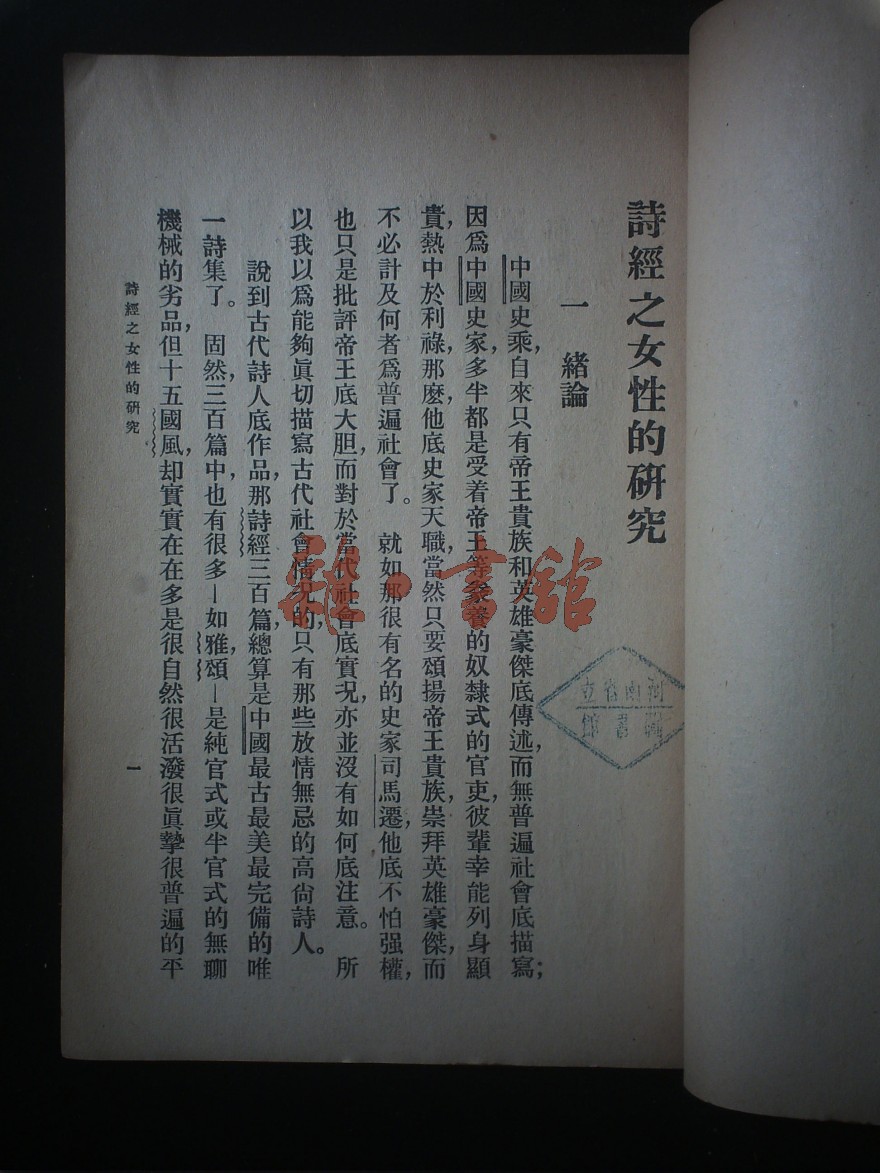 詩經之女性的研究
一　緒論
中國史乘，自來只有帝王貴族和英雄豪傑底傳述，而無普遍社會底描寫；
因爲中國史家，多半都是受着帝王等豢養的奴隸式的官吏，彼輩幸能列身顯
貴，熱中於利祿，那麽他底史家天職，當然只要頌揚帝王貴族，崇拜英雄豪傑，而
不必計及何者爲普遍社會了。　就如那很有名的史家司馬遷，他底不怕强權，
也只是批評帝王底大胆，而對於當代社會底實况，亦並沒有如何底注意。　所
以我以爲能夠眞切描寫古代社會情况的，只有那些放情無忌的高尙詩人。
說到古代詩人底作品，那詩經三百篇，總算是中國最古最美最完備的唯
一詩集了。　固然，三百篇中，也有很多—如雅，頌—是純官式或半官式的無聊
機械的劣品，但十五國風，却實實在在多是很自然很活潑很眞摯很普遍的平
詩經之女性的研究
一
雜·書館
河南省立
圖書館